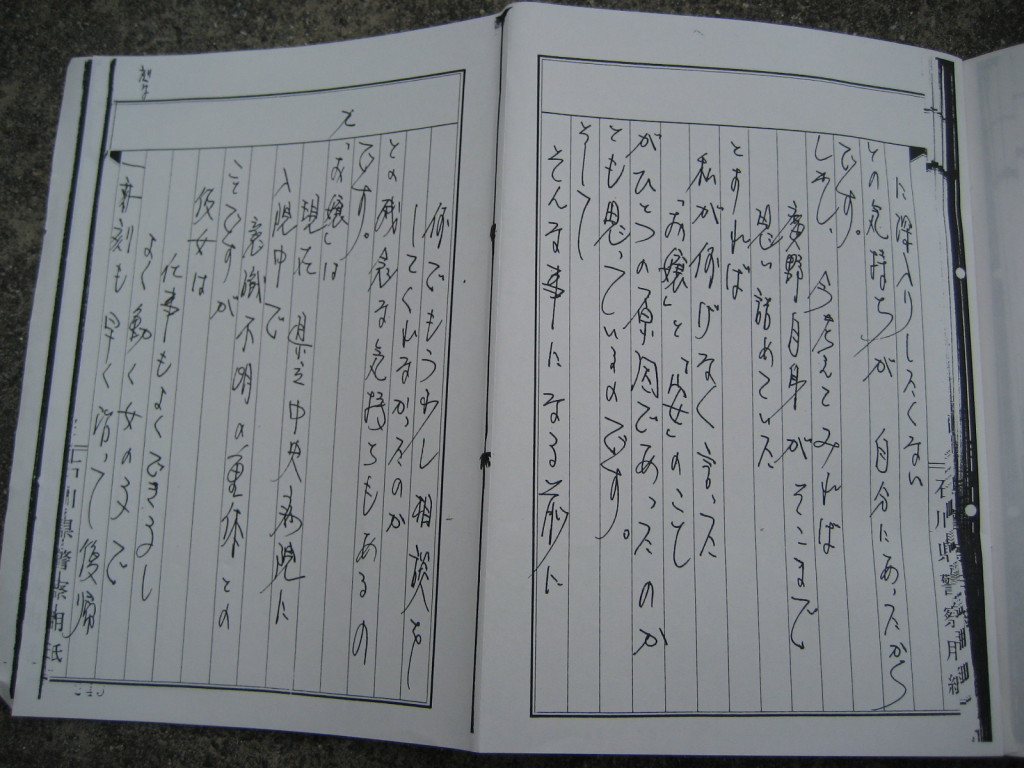 に深入りしたくない
との気持ちが 自分にあったから
です。
しかし、今考えてみれば
廣野自身が そこまで
思い詰めていた
とすれば
私が何げなく言った
「お嬢」と「安」のこと
がひとつの原因であったのか
とも思っているのです。
そして
そんな事になる前に
石川県警察用紙
何でもう少し相談を
してくれなかったのか
との残念な気持ちもあるの
です。
「お嬢」は
現在 県立中央病院に
入院中で
意識不明の重体との
ことですが
彼女は
仕事もよくできるし
よく動く女の子で
夜刻も早く
石川県警察用紙